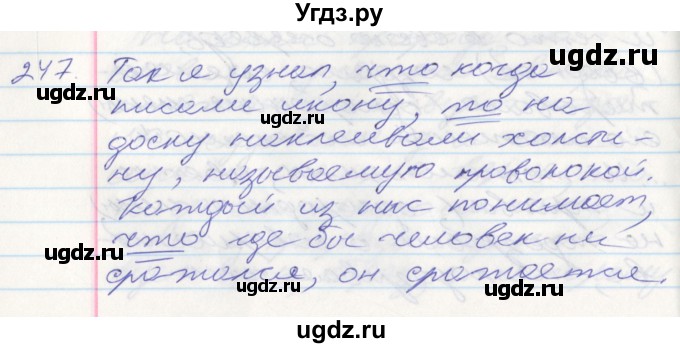 Угдз.ру
ugdz.ru
ugdz.ru
247. Так я узнал, что когда
писали икону, то на
доску наклеивали холсти-
ну, называемую проволокой.
Каждый из нас понимает,
что где бы человек ни
сражался, он сражается.
ugdz.ru
ugdz.ru
ugdz.ru
ugdz.ru
ugdz.ru